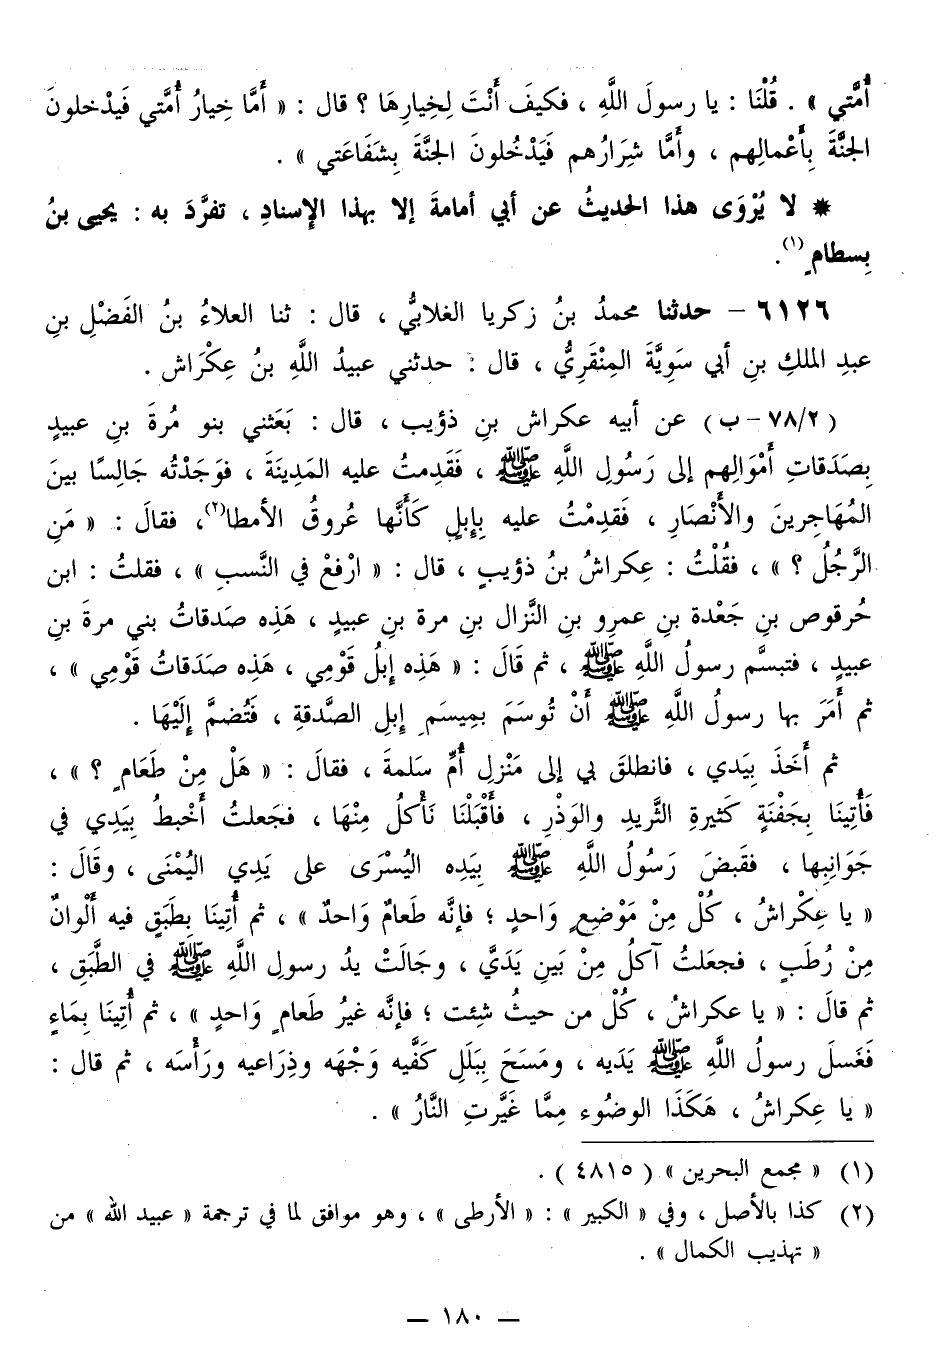 أُمَّتي » . قُلْنَا : يا رسولَ اللَّهِ ، فكيفَ أَنْتَ لِخِيارِهَا ؟ قال : « أَمَّا خِيارُ أُمَّتي فَيدْخلونَ
الجنَّةَ بِأَعْمالِهم ، وأَمَّا شِرَارُهم فَيَدْخُلونَ الجنَّةَ بِشَفَاعَتي » .
* لا يُرْوَى هذا الحديثُ عن أبي أمامةَ إلا بهذا الإِسنادِ ، تفرَّدَ به : يحيى بنُ
بِسطامٍ (١).
٦١٢٦ – حدثنا محمدُ بنُ زكريا الغلابيُّ ، قال : ثنا العلاءُ بنُ الفَضْلِ بنِ
عبدِ الملكِ بنِ أبي سَوِيَّةَ المِنْقَرِيُّ ، قال : حدثني عبيدُ اللَّهِ بنُ عِكْرَاش .
( ٧٨/٢ – ب ) عن أبيه عكراش بنِ ذؤيب ، قال : بَعَثني بنو مُرةَ بنِ عبيدٍ
بِصَدَقاتِ أَمْوَالِهم إلى رَسُولِ اللَّهِ ﷺ ، فَقَدِمتُ عليه المَدِينَةَ ، فوَجَدْتُه جَالِسًا بينَ
المُهَاجِرينَ والأَنْصَارِ ، فَقدِمْتُ عليه بِإِبلٍ كَأَنَّها عُروقُ الأمطا(٢)، فقالَ : « مَنِ
الرَّجُلُ ؟ » ، فقُلْتُ : عِكراشُ بنُ ذؤيبٍ ، قال : « ارْفعْ في النَّسب » ، فقلتُ : ابن
حُرقوص بنِ جَعْدة بنِ عمرِو بنِ النَّزال بنِ مرة بنِ عبيدٍ ، هَذِه صَدقاتُ بني مرةَ بنِ
عبيدٍ ، فتبسَّم رسولُ اللَّهِ ﷺ ، ثم قَالَ : « هَذِه إِبلُ قَوْمِي ، هَذِه صَدَقاتُ قَوْمِي » ،
ثم أَمَرَ بها رسولُ اللَّهِ ﷺ أَنْ تُوسَمَ بمِيسَمِ إبلِ الصَّدقةِ ، فَتُضمَّ إِلَيْهَا .
ثم أَخَذَ بِيَدي ، فانطلقَ بي إلى مَنْزلِ أُمِّ سَلمةَ ، فقالَ : « هَلْ مِنْ طَعَامٍ ؟ » ،
فَأُتِينَا بِجَفْنَةٍ كَثيرةِ الثَّريدِ والوَذْرِ ، فأَقْبَلْنَا نَأْكُلُ مِنْهَا ، فجَعلتُ أَخْبطُ بِيَدِي في
جَوَانِبِها ، فقَبضَ رَسُولُ اللَّهِ ﷺ بِيَدِه اليُسْرَى على يَدِي اليُمْنَى ، وقَالَ :
« يا عِكْراشُ ، كُلْ مِنْ مَوْضِعٍ وَاحدٍ ؛ فإنَّه طَعامٌ وَاحدٌ » ، ثم أُتِينَا بِطَبَقٍ فيه أَلْوانٌ
مِنْ رُطَبٍ ، فجعَلتُ آكلُ مِنْ بَينِ يَدَيَّ ، وجَالَتْ يدُ رسولِ اللَّهِ ﷺ في الطَّبَقِ ،
ثم قالَ : « يا عكراشُ ، كُلْ من حيثُ شِئت ؛ فإنَّه غيرُ طَعامٍ وَاحدٍ » ، ثم أُتِينَا بِمَاءٍ
فَغَسلَ رسولُ اللَّهِ ﷺ يَدَيه ، ومَسَحَ بِبَلَلِ كَفَّيه وَجْهَه وذِرَاعيه ورَأْسَه ، ثم قال :
« يا عِكراشُ ، هَكَذَا الوضُوء مِمَّا غَيَّرتِ النَّارُ » .
(١) « مجمع البحرين » ( ٤٨١٥ ) .
(٢) كذا بالأصل ، وفي « الكبير » : « الأرطى » ، وهو موافق لما في ترجمة « عبيد الله » من
« تهذيب الكمال » .
— ١٨٠ —